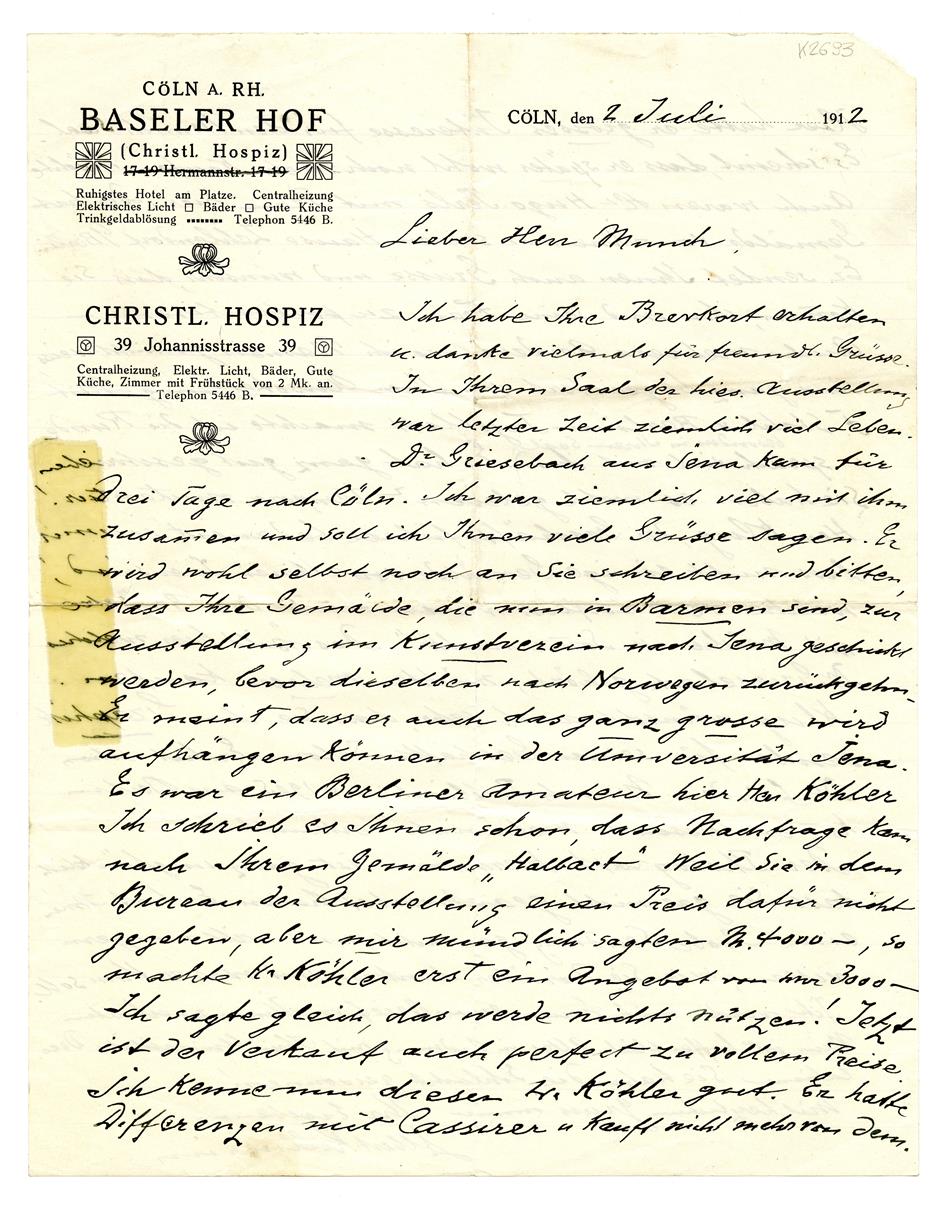 K2693
CÖLN A. RH.
BASELER HOF
(Christl. Hospiz)
17-19 Hermannstr. 17-19
Ruhigstes Hotel am Platze. Centralheizung
Elektrisches Licht □ Bäder □ Gute Küche
Trinkgeldablösung ........ Telephon 5446 B.
CHRISTL. HOSPIZ
39 Johannisstrasse 39
Centralheizung, Elektr. Licht, Bäder, Gute
Küche, Zimmer mit Frühstück von 2 Mk. an.
Telephon 5446 B.
CÖLN, den 2 Juli 1912
Lieber Herr Munch,
Ich habe Ihre Brevkort erhalten
u. danke vielmals für freundl. Grüsse.
In Ihrem Saal der hies. Ausstellung
war letzter Zeit ziemlich viel Leben.
Dr. Griesebach aus Jena kam für
drei Tage nach Cöln. Ich war ziemlich viel mit ihm
zusam̅en und soll ich Ihnen viele Grüsse sagen. Er
wird wohl selbst noch an Sie schreiben und bitten,
dass Ihre Gemälde, die nun in Barmen sind, zur
Ausstellung im Kunstverein nach Jena geschickt
werden, bevor dieselben nach Norwegen zurückgehn.
Er meint, dass er auch das ganz grosse wird
aufhängen können in der Universität Jena.
Es war ein Berliner Amateur hier Herr Köhler
Ich schrieb es Ihnen schon, dass Nachfrage kam
nach Ihrem Gemälde „Halbact" Weil Sie in dem
Bureau der Ausstellung einen Preis dafür nicht
gegeben, aber mir mündlich sagten M. 4000 –, so
machte Hr Köhler erst ein Angebot von nur 3000 –
Ich sagte gleich, das werde nichts nützen! Jetzt
ist der Verkauf auch perfect zu vollem Preise
Ich kenne nun diesen Hr Köhler gut. Er hatte
Differenzen mit Cassirer u kauft nicht mehr von dem.